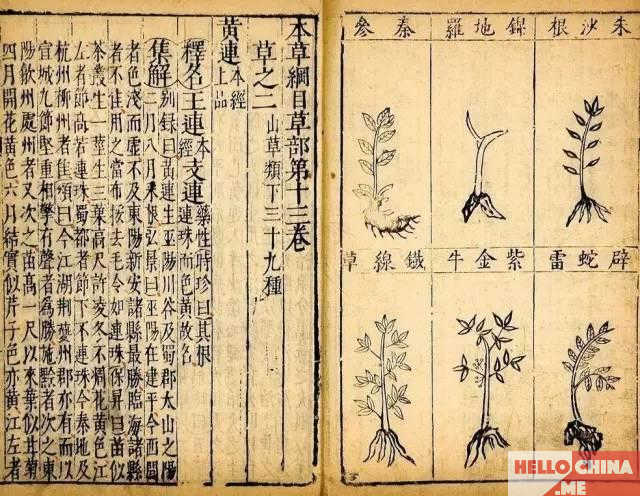 朱沙根
錦地羅
拳參
辟蛇雷
紫金牛
鐵線草
本草綱目草部第十三卷
草之二 山草類下三十九種
黃連 本經上品
釋名王連 本經 支連 藥性時珍曰其根連珠而色黃故名
集解 別錄曰黃連生巫陽川谷及蜀郡太山之陽
二月八月采根弘景曰巫陽在建平今西間
者色淺而虛不及東陽新安諸縣最勝臨海諸縣
者不佳用之當布裹挼去毛令如連珠保昇曰苗似
茶叢生一莖生三葉高尺許凌冬不凋花黃色江
左者節高若連珠蜀都者節下不連珠今秦地及
杭州柳州者佳頌曰今江湖荊夔州郡亦有而以
宣城九節堅重相擊有聲者為勝施黔者次之東
陽歙州處州者又次之苗高一尺以來葉似甘菊
四月開花黃色六月結實似芹子色亦黃江左者
HELLOCHINA
.ME